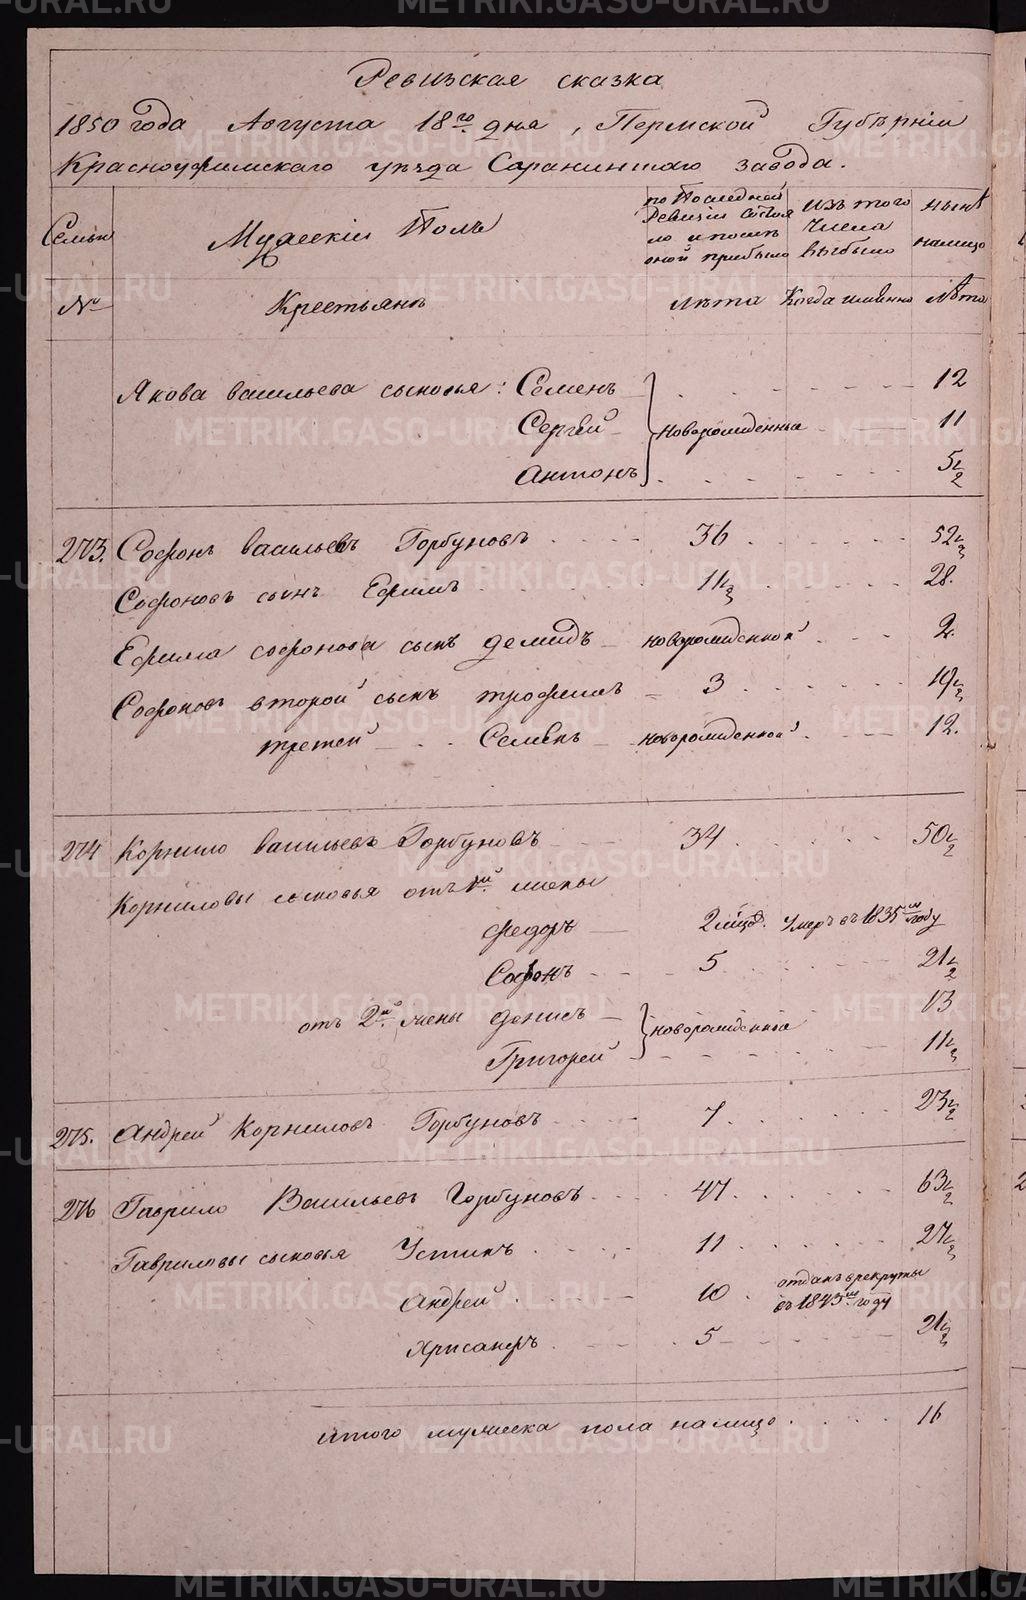 Ревизская сказка
1850 года Августа 18го дня, Пермской Губернiи
Красноуфимскаго уезда Саранинскаго завода.
Семьи
Мужескiй Полъ
по Последней Ревизiи состояло и после оной прибыло
Изъ того Числа выбыло
ныне налицо
№
Крестьянъ
лета
Когда именно
лета
Якова васильева сыновья: Семенъ 12
Сергей новорожденные 11
Антонъ 5 1/2
273. Софонъ васильевъ Горбуновъ 36 52 1/2
Софоновъ сынъ Ефимъ 11 1/2 28.
Ефима софонова сынъ демидъ новорожденной 2.
Софоновъ второй сынъ трофимъ 3 19 1/2
третей Семенъ новорожденной 12.
274 Корнило васильевъ Горбуновъ 34 50 1/2
Корниловы сыновья отъ 1й жены
Федоръ 2 мецо. Умеръ въ 1835м году
Софонъ 5 21 1/2
отъ 2й жены денисъ новорожденные 13
Григорей 11 1/2
275. Андрей Корниловъ Горбуновъ 7 23 1/2
276 Гаврило Васильевъ Горбуновъ 47 63 1/2
Гавриловы сыновья Устинъ 11 27 1/2
Андрей 10 отданъ в рекруты въ 1843м году
Хрисанфъ 5 21 1/2
итого мужеска пола налицо 16
METRIKI.GASO-URAL.RU